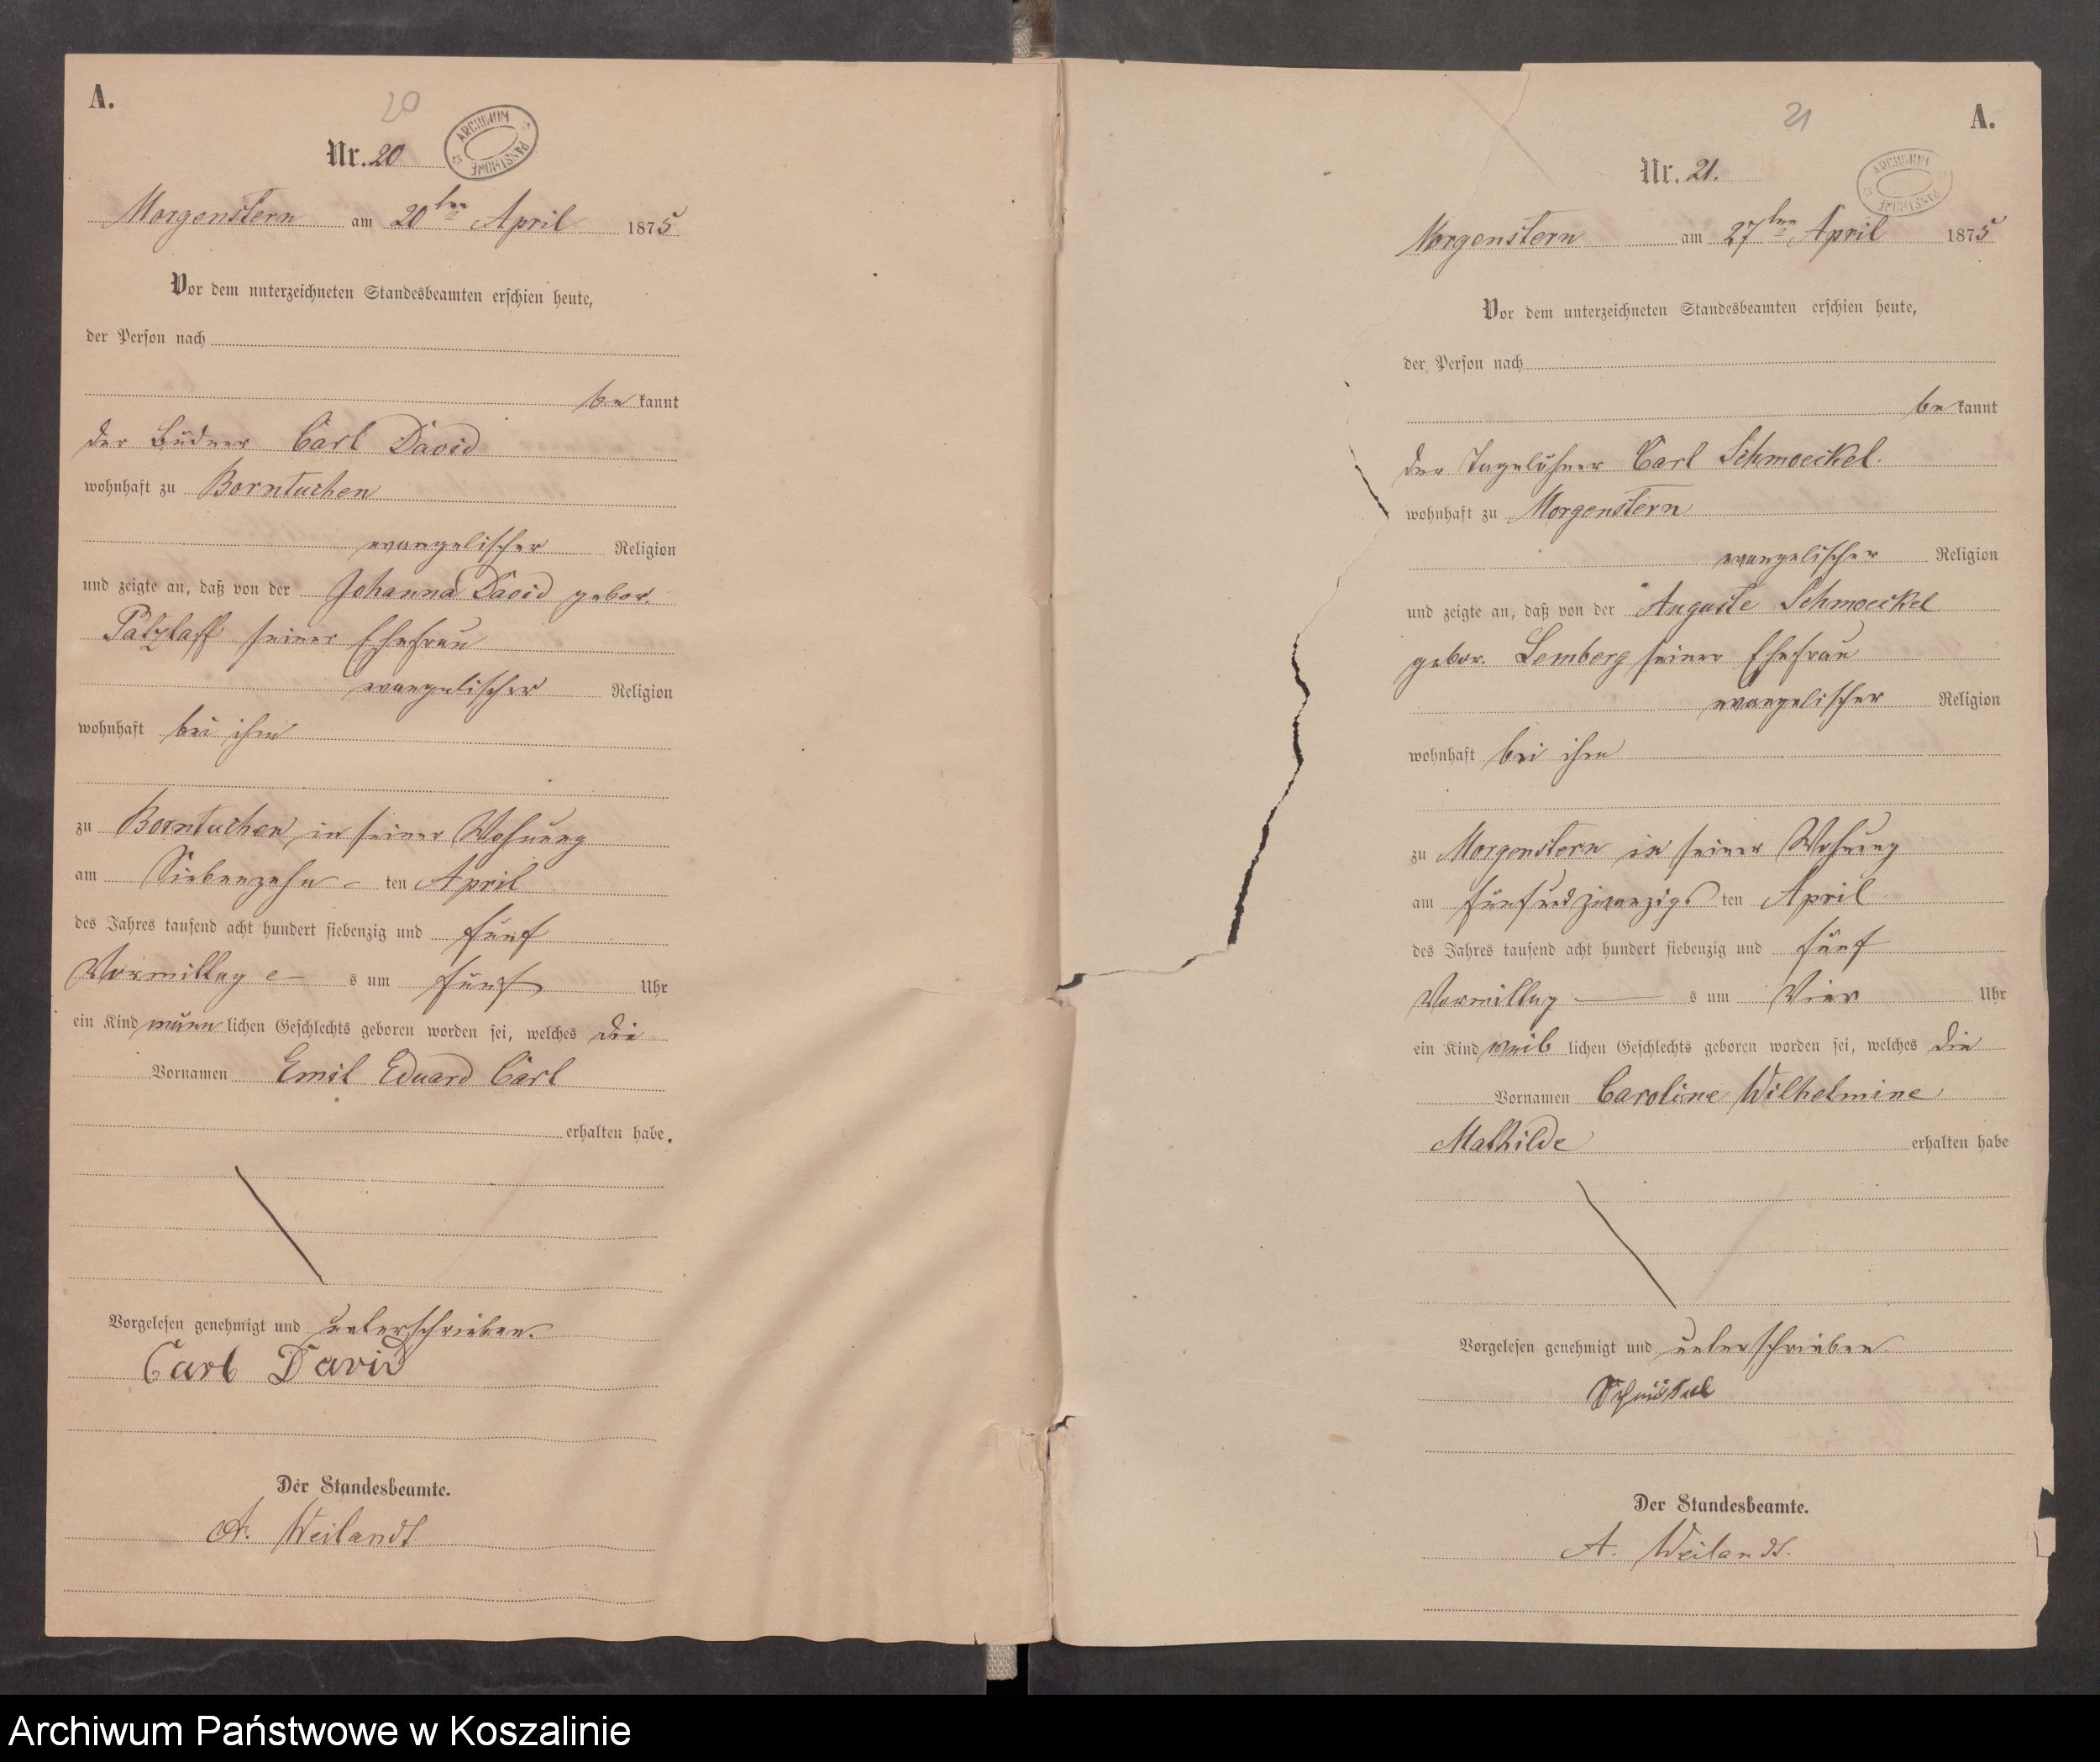 A.
20
Nr. 20
ARCHIWUM PAŃSTWOWE
Morgenstern am 20ten April 1875
Vor dem unterzeichneten Standesbeamten erschien heute,
der Person nach
be kannt
der Büdner Carl David
wohnhaft zu Borntuchen
evangelischer Religion
und zeigte an, daß von der Johanna David gebor.
Patzlaff seiner Ehefrau
evangelischer Religion
wohnhaft bei ihm
zu Borntuchen in seiner Wohnung
am Siebenzehn - ten April
des Jahres tausend acht hundert siebenzig und fünf
Vormittag e s um fünf Uhr
ein Kind männ lichen Geschlechts geboren worden sei, welches die
Vornamen Emil Eduard Carl
erhalten habe.
Vorgelesen genehmigt und unterschrieben.
Carl David
Der Standesbeamte.
A. Weilandt
21
A.
Nr. 21.
ARCHIWUM PAŃSTWOWE
Morgenstern am 27ten April 1875
Vor dem unterzeichneten Standesbeamten erschien heute,
der Person nach
be kannt
der Tagelöhner Carl Schmoeckel.
wohnhaft zu Morgenstern
evangelischer Religion
und zeigte an, daß von der Auguste Schmoeckel
gebor. Lemberg seiner Ehefrau
evangelischer Religion
wohnhaft bei ihm
zu Morgenstern in seiner Wohnung
am fünfundzwanzigs ten April
des Jahres tausend acht hundert siebenzig und fünf
Vormittag s um Vier Uhr
ein Kind weib lichen Geschlechts geboren worden sei, welches die
Vornamen Caroline Wilhelmine
Mathilde erhalten habe
Vorgelesen genehmigt und unterschrieben.
Der Standesbeamte.
A. Weilandt.
Archiwum Państwowe w Koszalinie